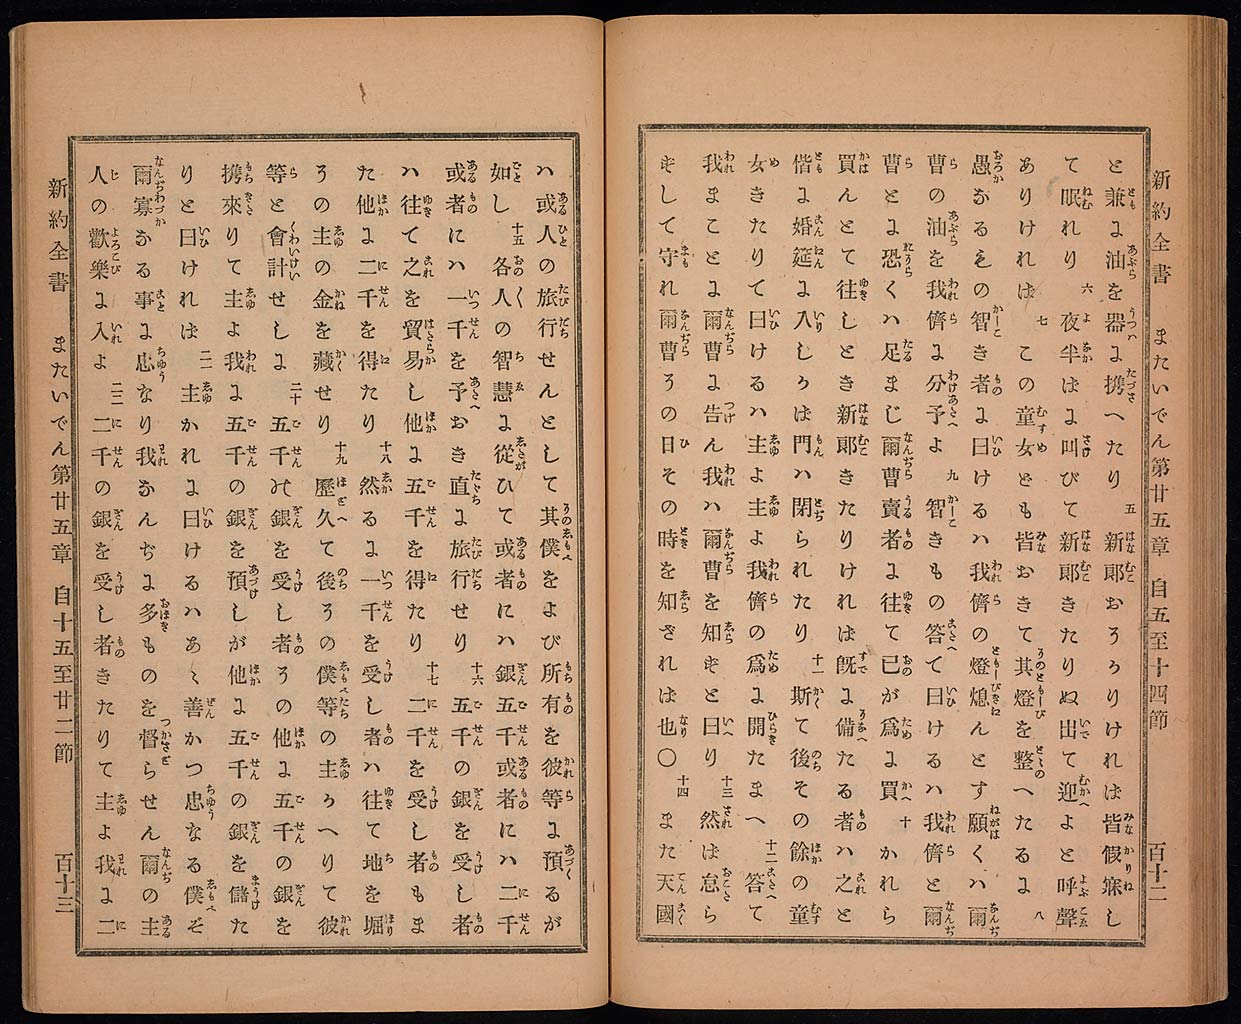 新約全書 またいでん第廿五章 自五至十四節 百十二
と兼よ油を器よ携へたり 五 新郎おそかりければ皆假寐し
て眠れり 六 夜半ばよ叫びて新郎きたりぬ出て迎よと呼聲
ありければ 七 この童女ども皆おきて其燈を整へたるよ 八
愚なるもの智き者よ曰けるハ我儕の燈熄んとす願くハ爾
曹の油を我儕よ分予よ 九 智きもの答て曰けるハ我儕と爾
曹とよ恐くハ足まじ爾曹賣者よ往て己が爲よ買 十 かれら
買んとて往しとき新郎きたりければ既よ備たる者ハ之と
偕よ婚筵よ入しかば門ハ閉られたり 十一 斯て後その餘の童
女きたりて曰けるハ主よ主よ我儕の爲よ開たまへ 十二 答て
我まことよ爾曹よ告ん我ハ爾曹を知ずと曰り 十三 然ば怠ら
ずして守れ爾曹その日その時を知ざれば也〇 十四 また天國
ハ或人の旅行せんとして其僕をよび所有を彼等よ預るが
如し 十五 各人の智慧よ從ひて或者にハ銀五千或者にハ二千
或者にハ一千を予おき直よ旅行せり 十六 五千の銀を受し者
ハ往て之を貿易し他よ五千を得たり 十七 二千を受し者もま
た他よ二千を得たり 十八 然るよ一千を受し者ハ往て地を堀
その主の金を藏せり 十九 歷久て後その僕等の主かへりて彼
等と會計せしよ 二十 五千の銀を受し者その他よ五千の銀を
携來りて主よ我よ五千の銀を預しが他よ五千の銀を儲た
りと曰ければ 二一 主かれよ曰けるハあゝ善かつ忠なる僕ぞ
爾寡なる事よ忠なり我なんぢよ多ものを督らせん爾の主
人の歡樂よ入よ 二二 二千の銀を受し者きたりて主よ我よ二
新約全書 またいでん第廿五章 自十五至廿二節 百十三